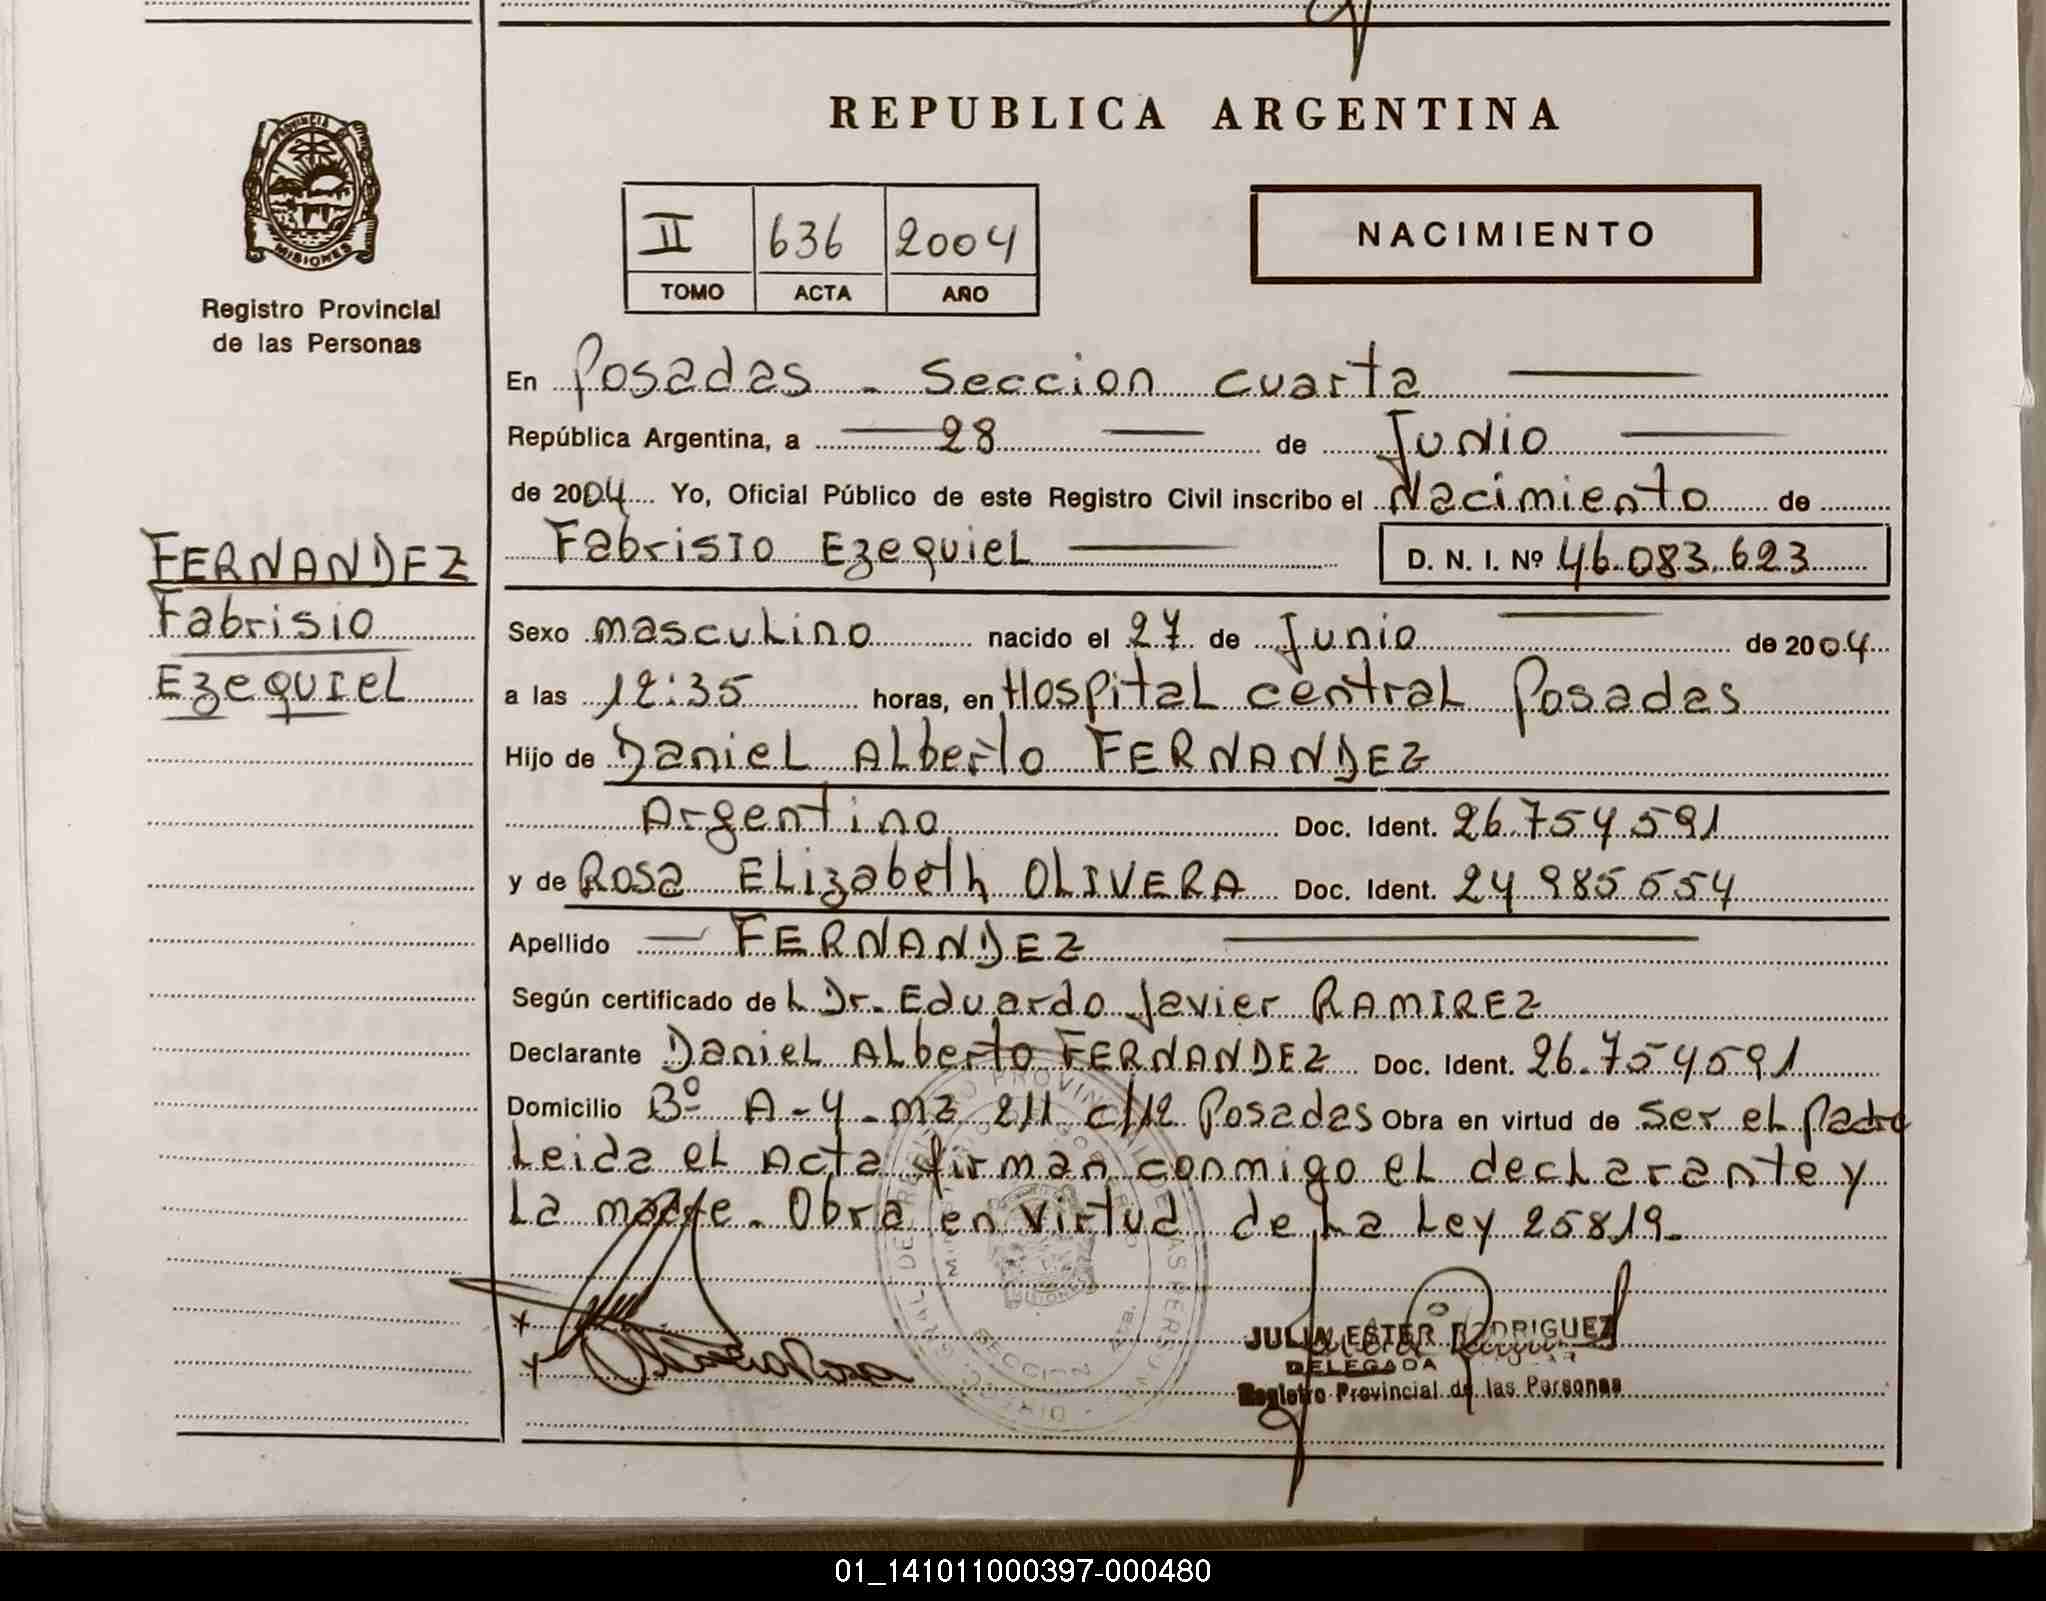 REPUBLICA ARGENTINA
PROVINCIA
MISIONES
Registro Provincial
de las Personas
II 636 2004
TOMO ACTA AÑO
NACIMIENTO
En Posadas - Seccion cuarta
República Argentina, a 28 de Junio
de 2004 Yo, Oficial Público de este Registro Civil inscribo el Nacimiento de
Fabrisio Ezequiel D. N. I. Nº 46.083.623
FERNANDEZ
Fabrisio
Ezequiel
Sexo masculino nacido el 27 de Junio de 2004
a las 12:35 horas, en Hospital central Posadas
Hijo de Daniel Alberto FERNANDEZ
Argentino Doc. Ident. 26.754.591
y de Rosa Elizabeth OLIVERA Doc. Ident. 24.985.554
Apellido FERNANDEZ
Según certificado del Dr. Eduardo Javier RAMIREZ
Declarante Daniel Alberto FERNANDEZ Doc. Ident. 26.754.591
Domicilio Bº A-4-mz 211 c/12 Posadas Obra en virtud de ser el padre
Leida el Acta firman conmigo el declarante y
La madre. Obra en virtud de La Ley 25819.
JULIA ESTER RODRIGUEZ
DELEGADA
Registro Provincial de las Personas
01_141011000397-000480